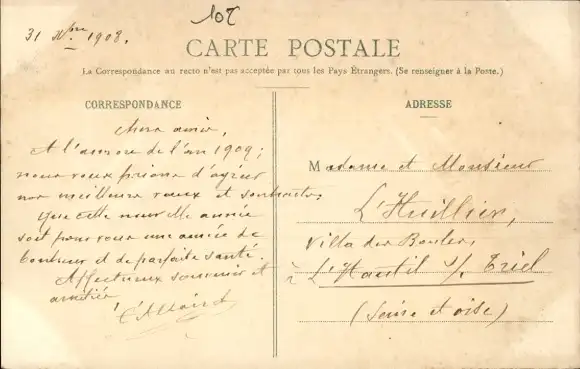 102
31 Xbre 1908.
CARTE POSTALE
La Correspondance au recto n'est pas acceptée par tous les Pays Étrangers. (Se renseigner à la Poste.)
CORRESPONDANCE
Chers amis,
A l'aurore de l'an 1909;
nous vous prions d'agréer
nos meilleurs vœux et souhaits
Que cette nouvelle année
soit pour vous une année de
bonheur et de parfaite santé.
Affectueux souvenir et
amitiés,
ADRESSE
Madame et Monsieur
L'Huillier,
Villa des
à L'Hautil s/ Triel
(Seine et oise)